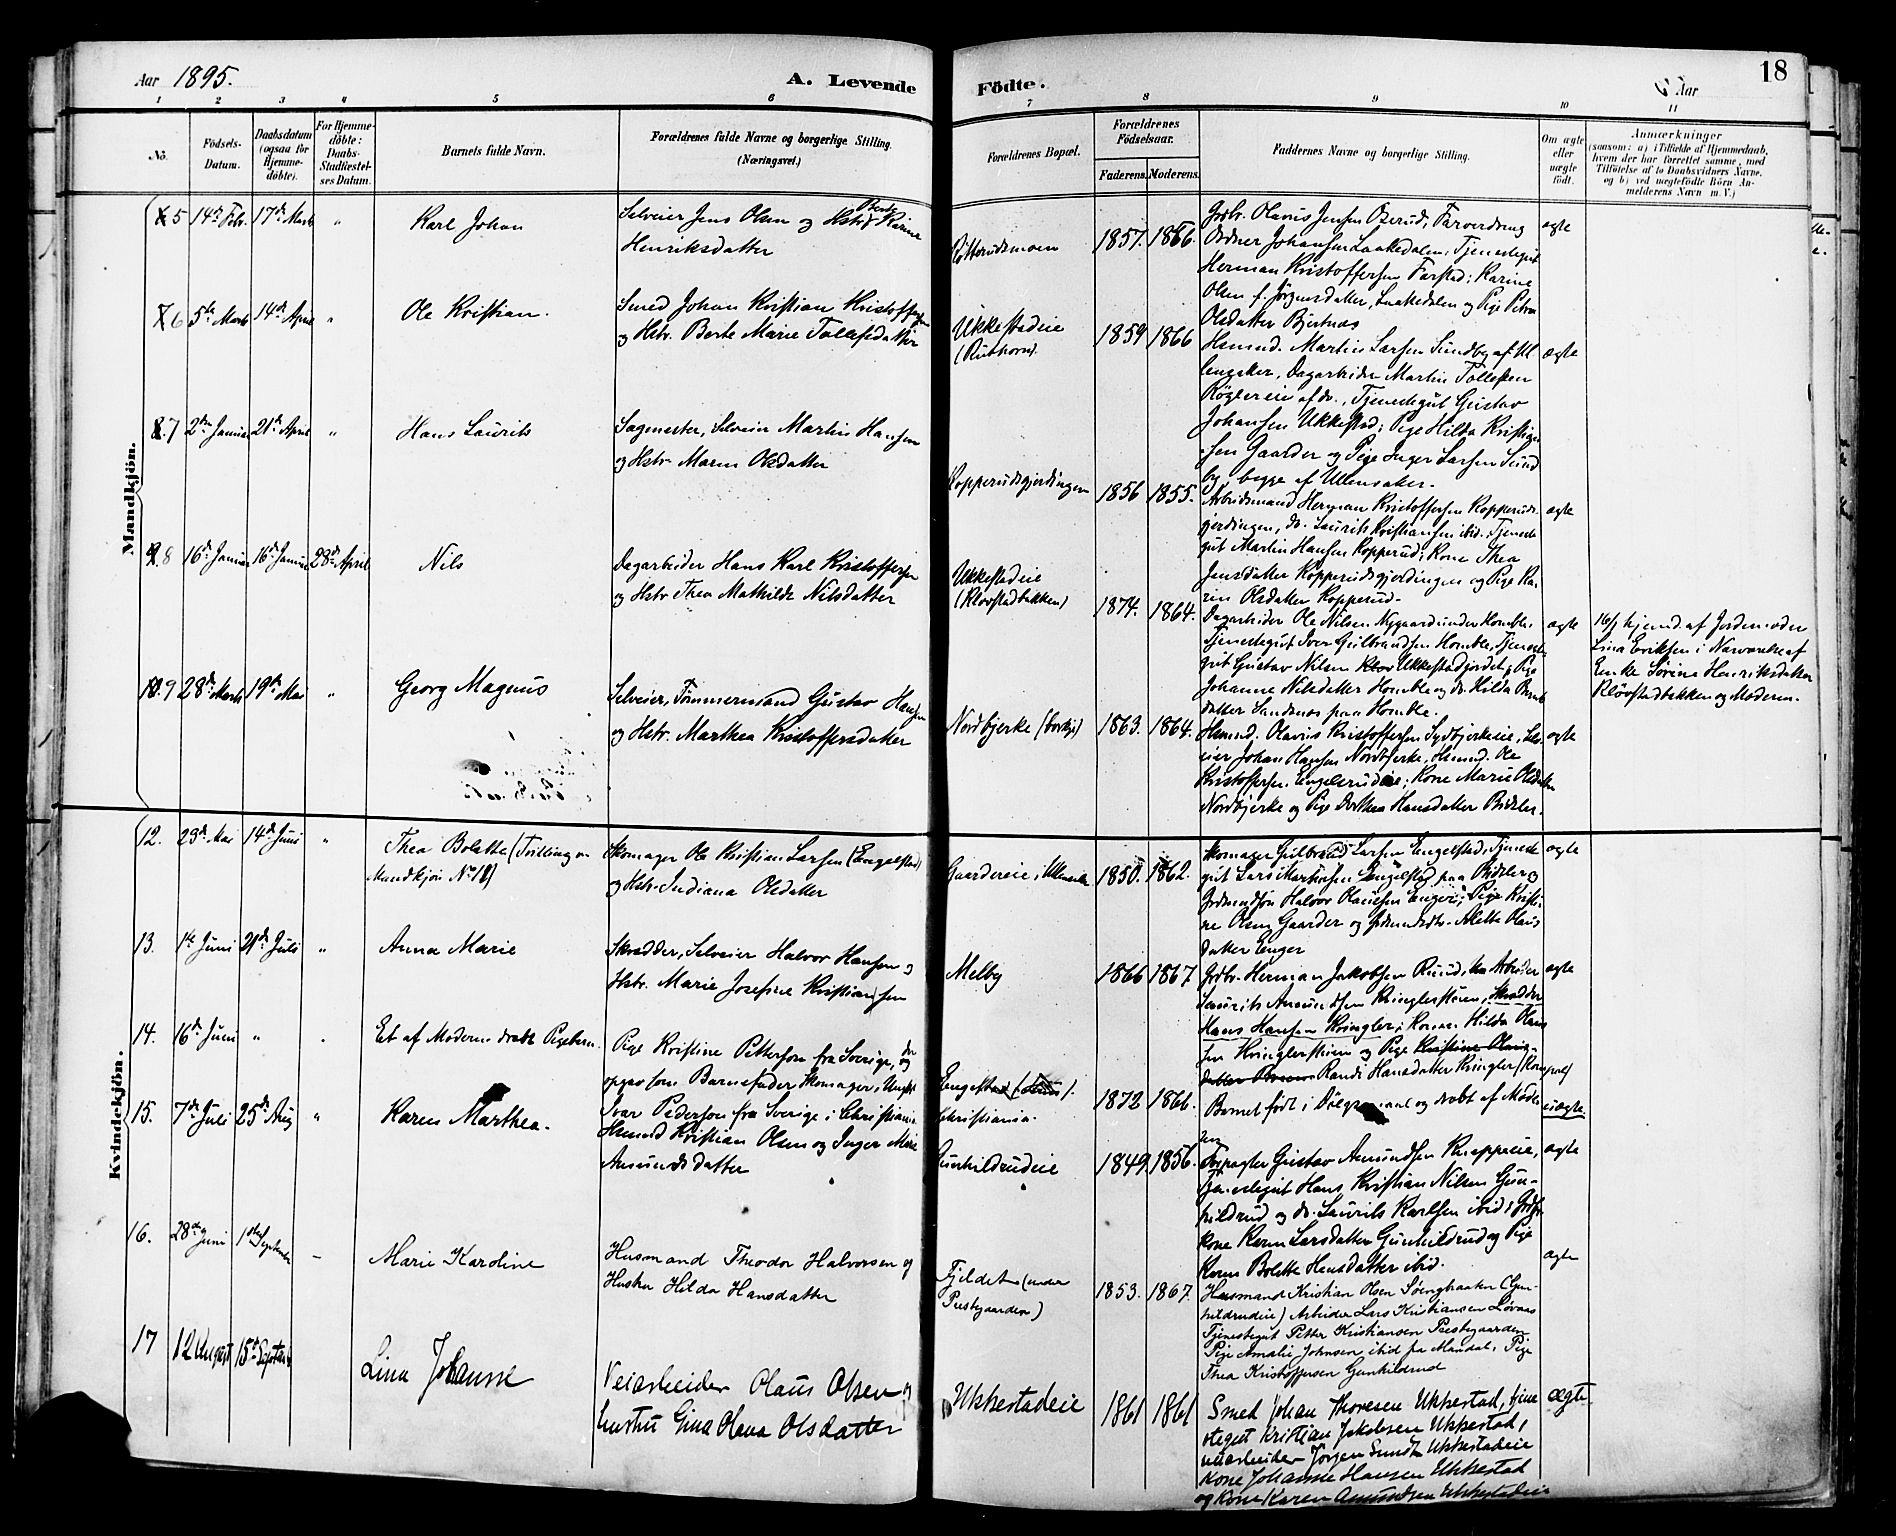 Aar 1895.
A. Levende Födte.
Aar
18
1 2 3 4 5 6 7 8 9 10 11
No.
Födsels-Datum.
Daabsdatum (ogsaa for Hjemmedöbte).
For Hjemmedöbte: Daabs-Stadfæstelses Datum.
Barnets fulde Navn.
Forældrenes fulde Navne og borgerlige Stilling. (Næringsvei.)
Forældrenes Bopæl.
Forældrenes Födselsaar.
Faderens. Moderens.
Faddernes Navne og borgerlige Stilling.
Om ægte eller uægte födt.
Anmærkninger
(saasom: a) i Tilfælde af Hjemmedaab, hvem der har forrettet samme, med Tilföielse af to Daabsvidners Navne, og b) ved uægtefödte Börn Anmelderens Navn m. V.)
Mandkjön.
5 14de Febr. 17de Marts " Karl Johan
Selveier Jens Olsen og Hstr. Karine
Henriksdatter
1857. 1866.
Grdbr. Olavus Jensen
Johansen Laakedalen, Tjenestegut
Herman Kristoffersen Farstad; Karine
Olsen f. Jörgensdatter, Laakedalen og Pige Petra
Olsdatter Bjertnæs
ægte
6 5te Marts 14de April " Ole Kristian.
Smed Johan Kristian Kristoffersen
og Hstr. Berte Marie Tollefsdatter
Ukkestadeie
1859 1866
Husmd. Martin Larsen Sundby af Ul
lensaker, Dagarbeider Martin Tollefsen
af do., Tjenestegut Gustav
Johansen Ukkestad; Pige Hilda Kristian
sen Gaarder og Pige Inger Larsen Sund
by, begge af Ullensaker.
ægte
7 2den Januar 21de April " Hans Laurits
Sagmester, Selveier Martin Hansen
og Hstr. Maren Olsdatter
Kopperudsgjerdingen
1856 1855.
Arbeidsmand Herman Kristoffersen Kopperuds
gjerdingen, do. Laurits Kristiansen ibid., Tjeneste
gut Martin Hansen Kopperud; Kone Thea
Jensdatter Kopperudsgjerdingen og Pige Ka
rin Olsdatter Kopperud.
ægte
8 16de Januar 16de Januar 28de April Nils
Dagarbeider Hans Karl Kristoffersen
og Hstr. Thea Mathilde Nilsdatter
Ukkestadeie
(Klövstadbakken)
1874. 1864.
Dagarbeider Ole Nilsen Nygaard under Homble,
Tjenestegut Iver Gulbrandsen Homble, Tjeneste
gut Gustav Nilsen Ukkestadjordet; Pige
Johanne Nilsdatter Homble og do. Hilda
datter Sandsnæs paa Homble.
ægte
16/1 hjemd. af Jordemoder
Lina Eriksen i Nærværelse af
Enke Sörine Henriksdatter
Klövstadbakken og Moderen.
9 28de Marts 19de Mai " Georg Magnus
Selveier, Tömmermand Gustav Hansen
og Hstr. Marthea Kristoffersdatter
Nordbjerke
1863. 1864.
Husmd. Olavus Kristoffersen Sydbjerkeeie, Selv
eier Johan Hansen Nordbjerke, Husmd. Ole
Kristoffersen Engelsrudeie; Kone Marie Olsdatter
Nordbjerke og Pige Dorthea Hansdatter Bidsler.
ægte
Kvindekjön.
12. 23de Mai 14de Juni " Thea Bolette (Tvilling
Mandkjön No 12)
Skomager Ole Kristian Larsen (Engelstad)
og Hstr. Indiana Olsdatter
Gaardereie, Ullensaker
1850. 1862.
Skomager Gulbrand Larsen Engelstad, Tjeneste
gut Lars Marthinsen Engelstad paa Bidsler og
Grdmandssön Halvor Olausen Enger; Pige Kristi
ne Olsen Gaarder og Grdmandsdtr. Alette Olaus
datter Enger
ægte
13. 1ste Juni 21de Juli " Anna Marie
Skrædder, Selveier Halvor Hansen og
Hstr. Marie Josefine Kristiansen
Melby
1866 1867
Grdbr. Herman Jakobsen Ruud, Arbeider
Laurits Amundsen Kringlerstuen, Skrædder
Hans Hansen Kringler; Konen Hilda Olaus
sen Kringlerstuen og Pige Kristine Olaus
datter Randi Hansdatter Kringler
ægte
14. 16de Juni " . Et af Moderen dræbt Pigebarn.
Pige Kristine Pettersen fra Sverige, og
opgav som Barnefader Skomager, Ungkl
Ivar Pedersen fra Sverige i Christiania
Christiania.
1872 1866.
Barnet födt i Dölgsmaal og dræbt af Mode
ren
uægte
15. 7de Juli 25de Aug " Karen Marthea.
Husmd Kristian Olsen og Inger Marie
Amundsdatter
Gunhildrudeie
1849. 1856.
Forpagter Gustav Amundsen Knappeie,
Tjenestegut Hans Kristian Nilsen Gun-
hildrud og do. Laurits Karlsen ibid;
kone Karen Larsdatter Gunhildrud og Pige
Karen Bolette Hansdatter ibid.
ægte
16. 28de Juni 1ste September – Marie Karoline
Husmand Theodor Halvorsen og
Hustru Hilda Hansdatter
Fjeldet (under
Prestegaarden)
1853. 1867.
Husmand Kristian Olsen (Gun-
hildrudeie) Arbeider Lars Kristiansen Lövaas
Tjenestegut Petter Kristiansen Prestegaarden
Pige Amalie Johnsen ibid fra Mandal, Pige
Thea Kristoffersen Gunhildrud
ægte
17 12 August 15de September Lina Johanne
Veiarbeider Olaus Olsen og
hustru Gina Olava Olsdatter
Ukkestadeie
1861 1861
Smed Johan Thoresen Ukkestad, tjene
stegut Kristian Jakobsen Ukkestad,
veiarbeider Jörgen Sundt Ukkestadeie
Kone Johanne Hansen Ukkestad
og Kone Karen Amundsen Ukkestadeie
ægte